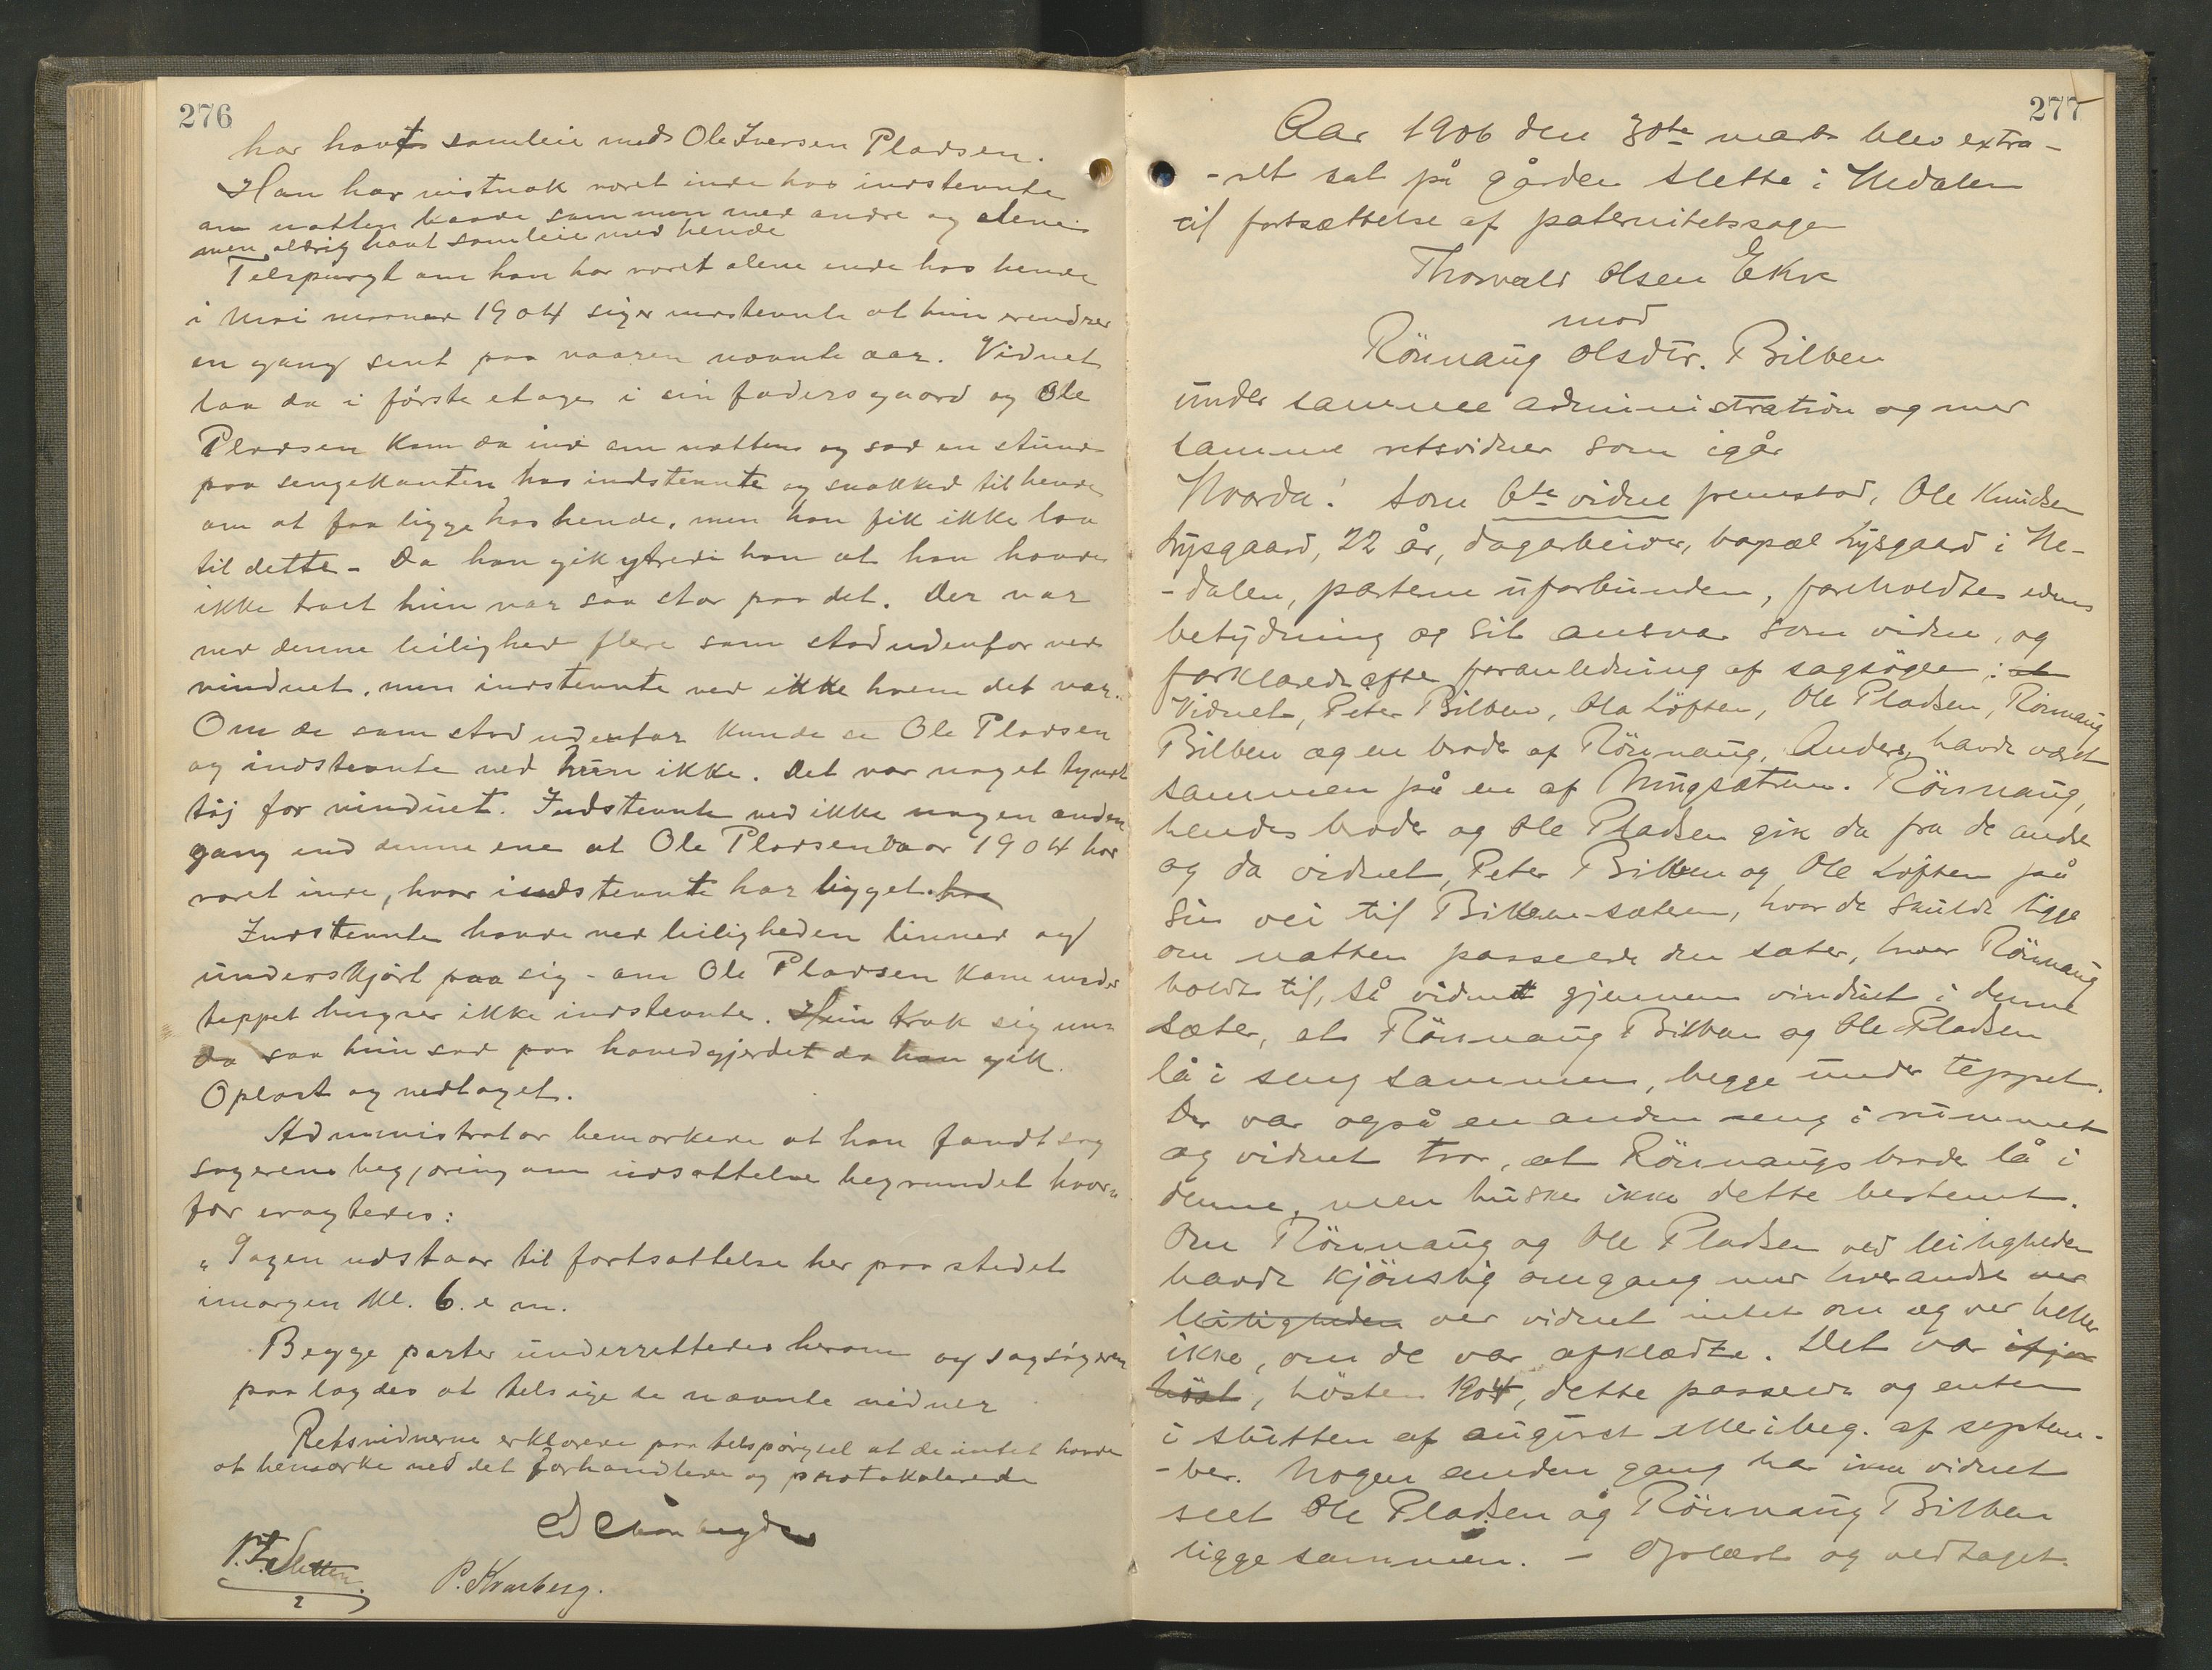 276
har havt samleie med Ole Iversen Pladsen.
Han har vistnok været inde hos indstevnte
om natten baade sammen med andre og alene
men aldrig havt samleie med hende
Tilspurgt om han har været alene inde hos hende
i Mai maaned 1904 siger indstevnte at hun erindrer
en gang sent paa vaaren nævnte aar. Vidnet
laa da i første etage i sin fadersgaard og Ole
Pladsen kom da ind om natten og sad en stund
paa sengekanten hos indstevnte og snakked til hende
om at faa ligge hos hende, men han fik ikke lov
til dette - Da han gik ytrede han at han havde
ikke troet hun var saa stor paa det. Der var
ved denne leilighed flere som stod udenfor ved
vinduet, men indstevnte ved ikke hvem det var.
Om de som stod udenfor kunde se Ole Pladsen
og indstevnte ved hun ikke. Det var noget tyndt
tøj for vinduet. Indstevnte ved ikke nogen anden
gang end denne ene at Ole Pladsen vaar 1904 har
været inde, hvor indstevnte har ligget. hos
Indstevnte havde ved leiligheden linned og
underskjørt paa sig - om Ole Pladsen kom under
teppet husger ikke indstevnte. Hun trak sig un
da saa hun sad paa hovedgjerdet da han gik.
Oplæst og vedtaget.
Administrator bemærkede at han fandt sag
søgerens begjæring om udsættelse begrundet hvor-
for eragtedes:
"Sagen udstaar til fortsættelse her paa stedet
imorgen kl. 6. e m.
Begge parter underrettedes herom og sagsøgeren
paalagdes at tilsige de nævnte vidner
Retsvidnerne erklærede paa tilspørgsel at de intet havde
at bemærke ved det forhandlede og protokolerede
P. Kvarberg.
277
Aar 1906 den 30te marts blev extra-
-ret sat på gården Slette i Nedalen
til fortsættelse af paternitetssagen
Thorvald Olsen Ekre
mod
Rönnaug Olsdtr. Bilben
under samme administration og med
samme retsvidner som igår
Hvorda! Som 6te vidne fremstod, Ole Knudsen
Lysgaard, 22 år, dagarbeider, bopæl Lysgaard i Ne-
-dalen, parterne uforbunden, foreholdtes edens
betydning og sit ansvar som vidne, og
forklarede efter foranledning af sagsøgeren: at
Vidnet, Peter Bilben, Ola Löften, Ole Pladsen, Rönnaug
Bilben og en broder af Rönnaug, Anders, havde været
sammen på en af Mugsætrene. Rönnaug,
hendes broder og Ole Pladsen gik da fra de andre
og da vidnet, Peter Bilben og Ole Löften på
sin vei til Bilben-sæteren, hvor de skulde ligge
om natten passerede den sæter, hvor Rönnaug
holdt til, så vidnet gjennem vinduet i denne
sæter, at Rönnaug Bilben og Ole Pladsen
lå i seng sammen, begge under teppet.
Der var også en anden seng i rummet
og vidnet tror, at Rönnaugs broder lå i
denne, men husker ikke dette bestemt.
Om Rönnaug og Ole Pladsen ved leiligheden
havde kjönslig omgang med hverandre ved
leiligheden ved vidnet intet om og ved heller
ikke, om de var afklædte. Det var ifjor
höst, hösten 1904, dette passerede og enten
i slutten af august eller i beg. af septem-
-ber. Nogen anden gang har ikke vidnet
seet Ole Pladsen og Rönnaug Bilben
ligge sammen. - Oplæst og vedtaget.